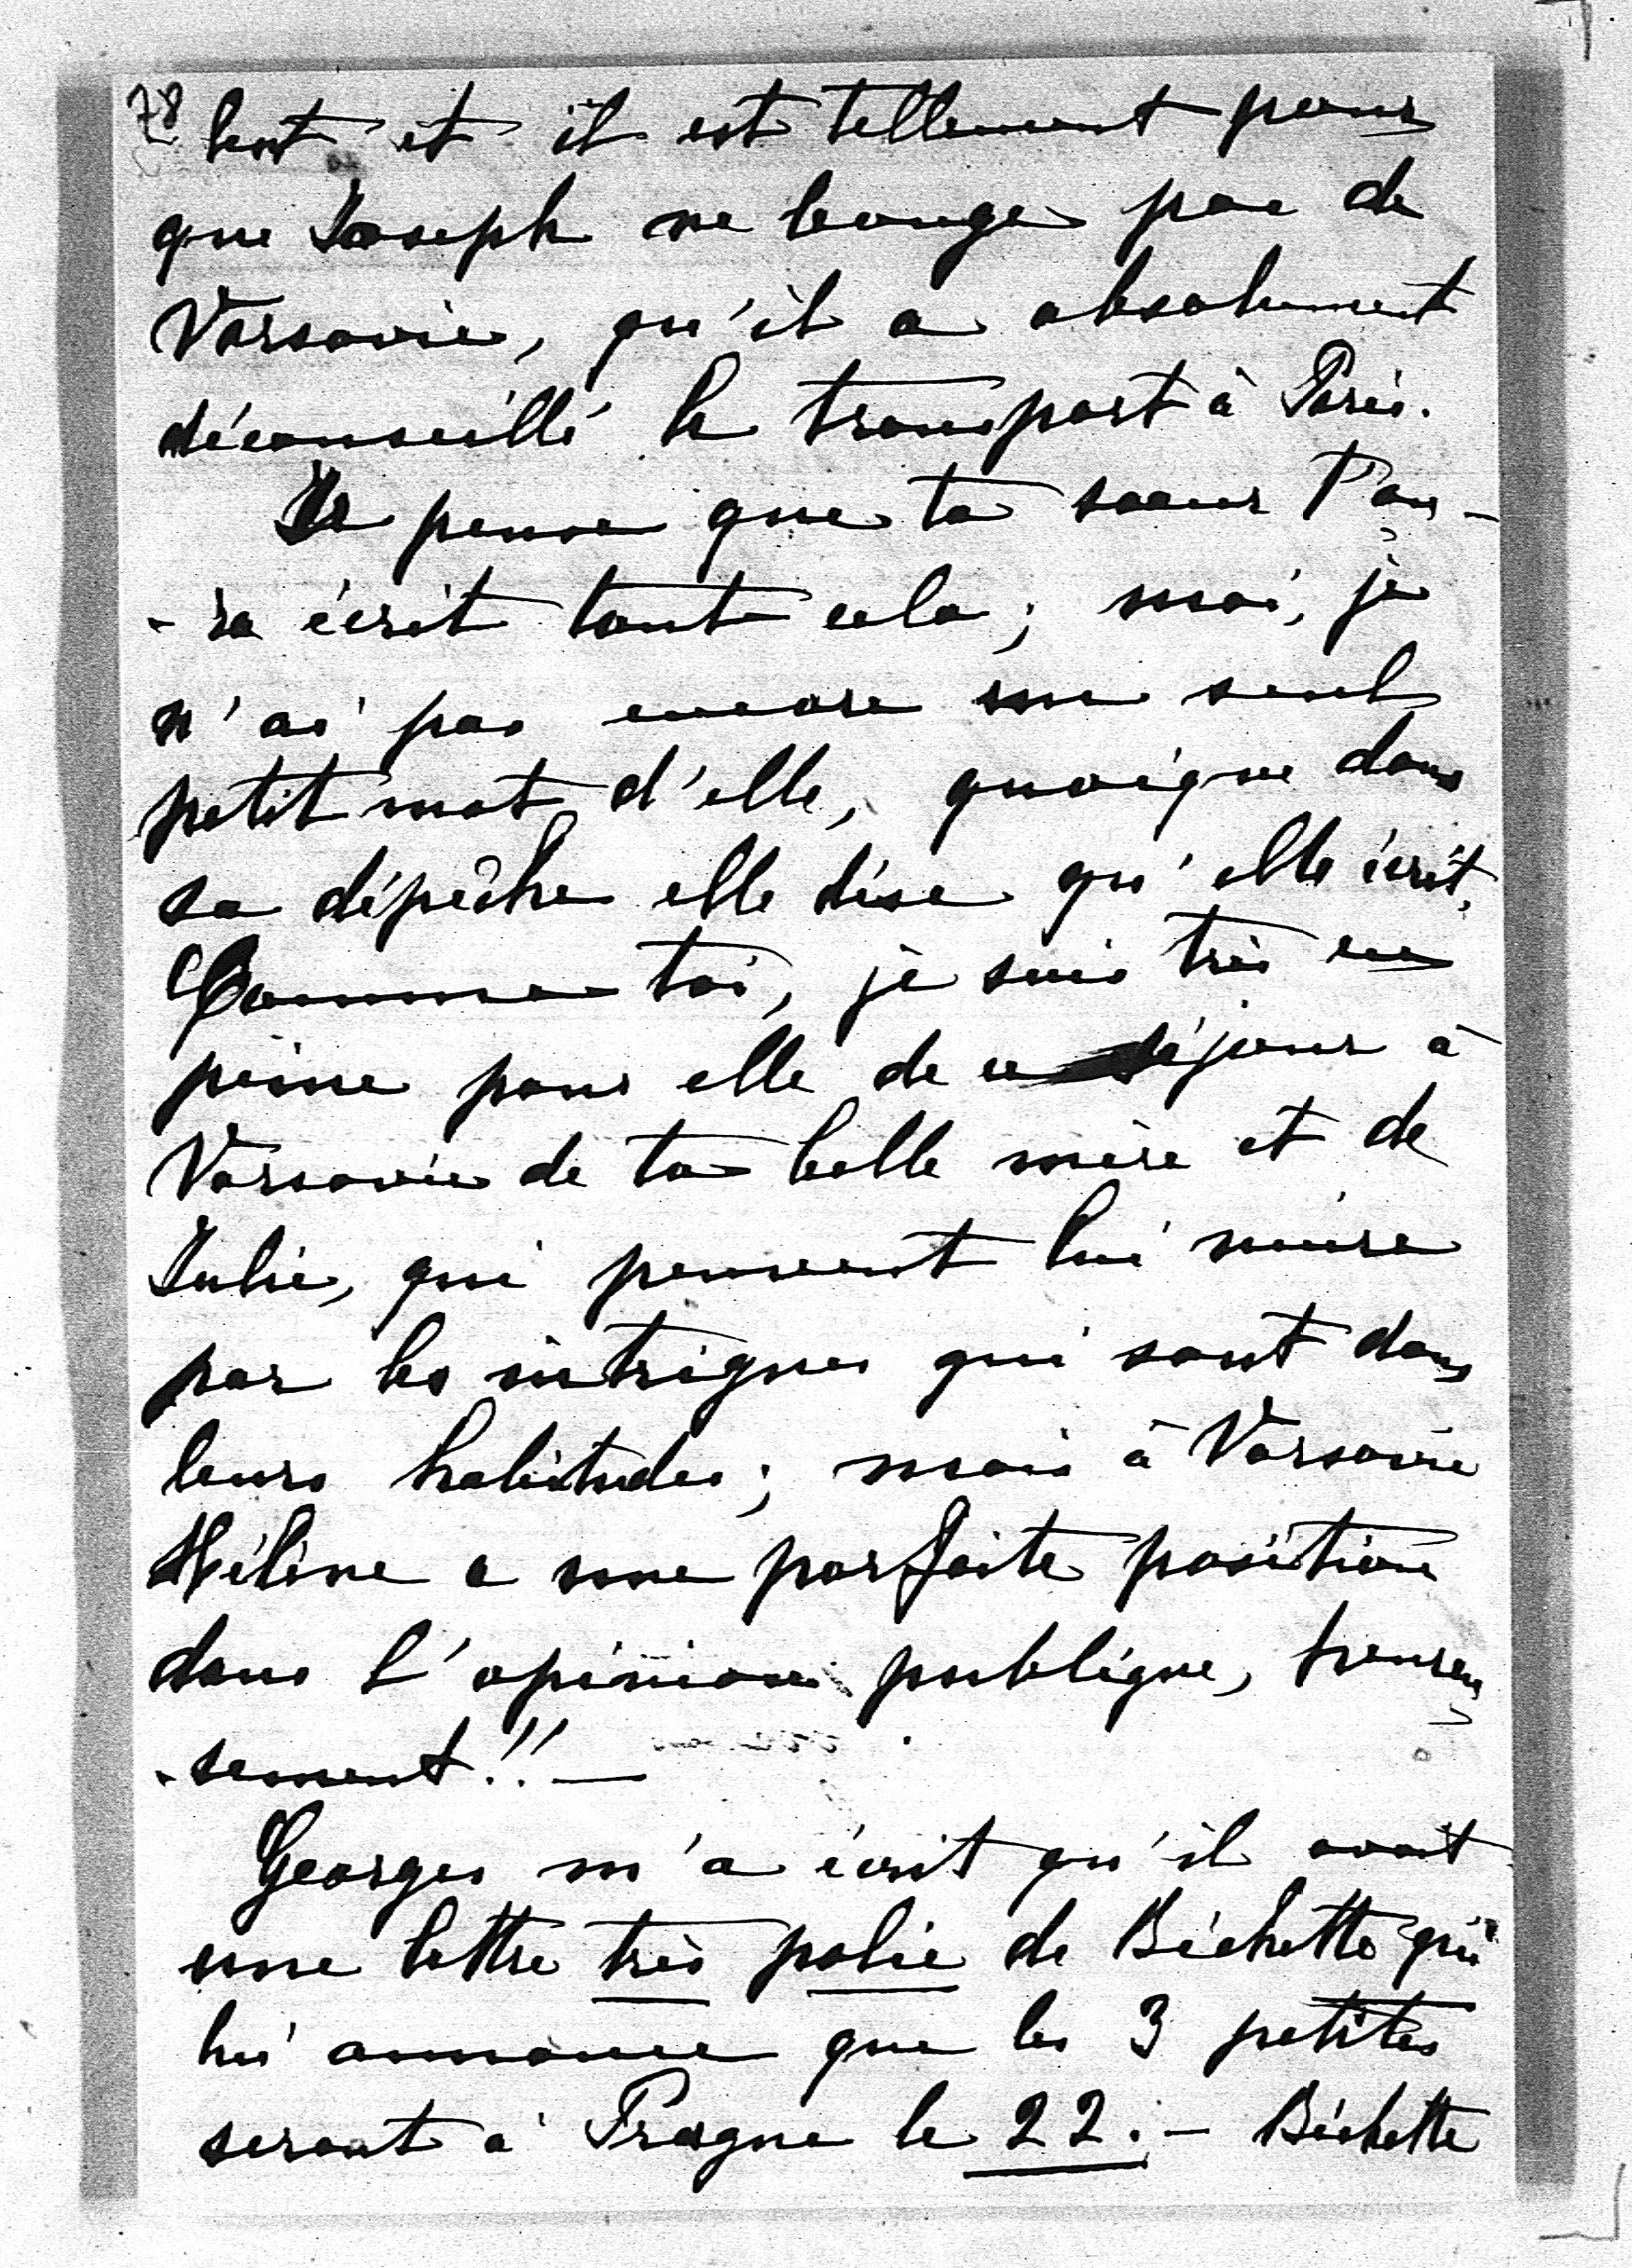 78
lent et il est tellement pour
que Joseph ne bouge pas de
Varsovie, qu'il a absolument
déconseillé le transport à Paris.
Je pense que ta soeur t'au-
-ra écrit tout cela; moi, je
n'ai pas encore un seul
petit mot d'elle, quoique dans
sa dépêche elle dise qu'elle écrit.
Comme toi, je suis très en
peine pour elle de ce séjour à
Varsovie de ta belle mère et de
Julie, qui peuvent lui nuire
par les intrigues qui sont dans
leurs habitudes; mais à Varsovie
Hélène a une parfaite position
dans l'opinion publique, heureu
-sement!! —
Georges m'a écrit qu'il avait
une lettre très polie de Bichette qui
lui annonce que les 3 petites
seront à Prague le 22. — Bichette